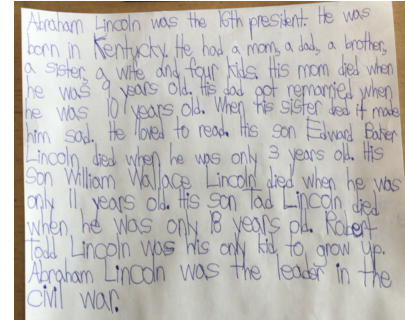 Abraham Lincoln was the 16th president. He was
born in Kentucky. He had a mom, a dad, a brother,
a sister, a wife and four kids. His mom died when
he was 9 years old. His dad got remarried when
he was 10 years old. When his sister died it made
him sad. He loved to read. His son Edward Baker
Lincoln died when he was only 3 years old. His
Son William Wallace Lincoln died when he was
only 11 years old. His son Tad Lincoln died
when he was only 18 years old. Robert
Todd Lincoln was his only kid to grow up.
Abraham Lincoln was the leader in the
civil war.